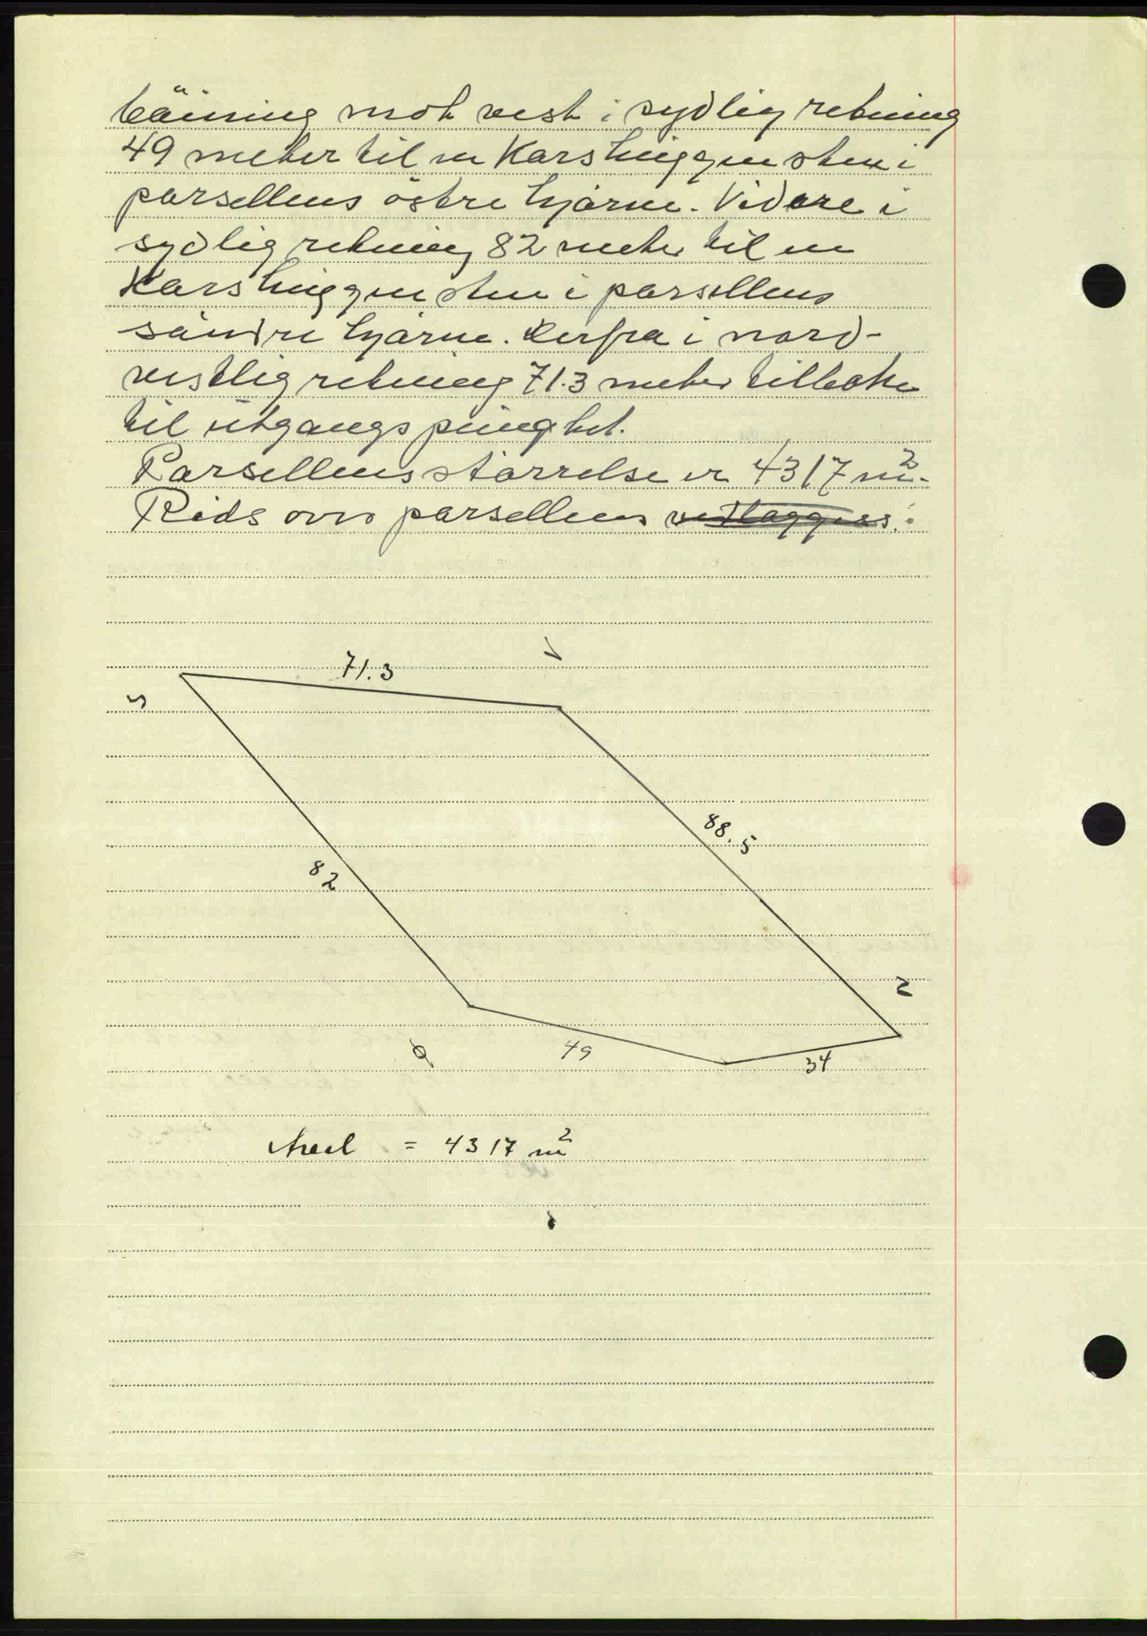 böining mot vest i sydlig retning
49 meter til en Karshuggen sten i
parsellens östre hjörne. Videre i
sydlig retning 82 meter til en
Karshuggen sten i parsellens
söndre hjörne. Herfra i nord-
vestlig retning 71.3 meter tilbake
til utgangspungtet.
Parsellens störrelse er 4317 m².
Rids over parsellens vedlægges:
71.3
V
S
88.5
82
N
Ø
49
34
Areal = 4317 m²